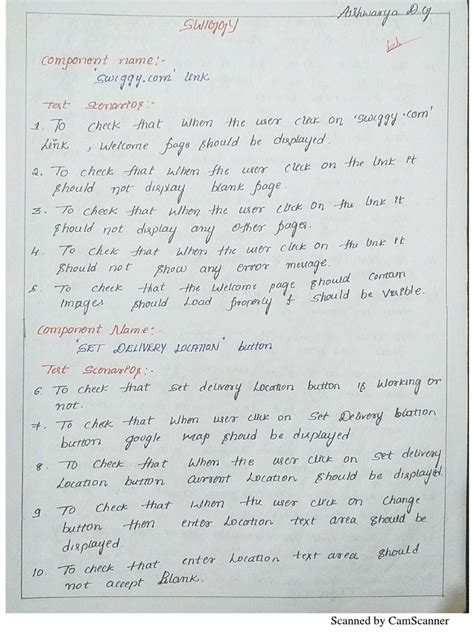 Aishwarya D.G
SWIGGY
Component name:-
'Swiggy.com' link
Test Scenarios:-
1. To check that when the user click on 'swiggy.com'
link, welcome page should be displayed.
2. To check that when the user click on the link it
should not display blank page.
3. To check that when the user click on the link it
should not display any other pages.
4. To chek that when the user click on the link it
should not show any error message.
5. To chek that the welcome page should contain
Images should Load properly & should be visible.
Component Name:-
'SET DELIVERY LOCATION' button
Test Scenarios:-
6. To check that set delivery Location button is working or
not.
7. To chek that when user click on Set Delivery location
button google map shoud be displayed
8. To Check that when the user click on set delivery
Location button current Location should be displayed.
9. To Check that when the user click on Change
button then enter Location text area should be
displayed.
10. To check that enter Location text area should
not accept Blank.
Scanned by CamScanner